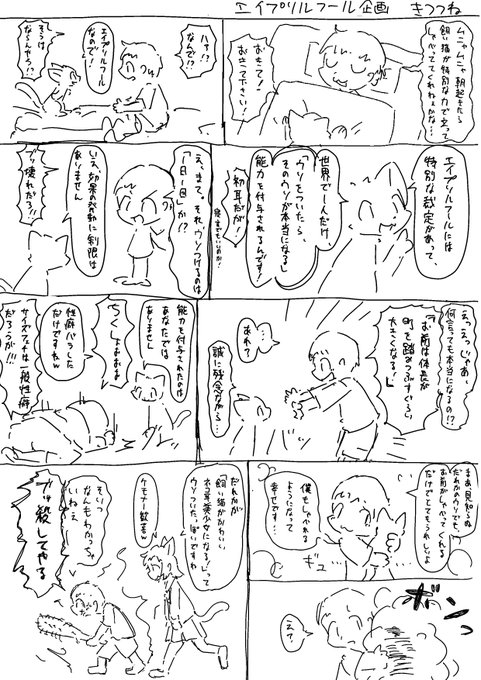 エイプリルフール企画
きつつね
ムニャムニャ朝起きたら
飼い猫が特別な力で立って
しゃべってくれねぇかな…
おもて!
お立って下さい!
ハァ!?
なんで!?
エイプリルフール
なので!
そうは
ならんやろ!?
エイプリルフールには
特別な裁定があって、
世界で一人だけ、
「ウソをついたら、
そのウソが本当になる」
能力を付与されるんです!
初耳だが!
え、まて。それ、ウソつけるのは
「1日1回」か!?
いえ、効果の発動に制限は
ありません
ブッ壊れだろ!!
えっえっ、じゃあ、
何言っても本当になるの!?
「お前は体長が
町を踏みつぶすぐらい
大きくなる」
…あれ?
誠に残念ながら…
能力を付与されたのは
あなたでは
ありません
性癖バラした
だけっすねぇ
ちくしょおおお
サイズフェチは一般性癖
だろうが!!!
まあ、見知らぬ
だれかのウソでも、
お前がしゃべってくれる
だけでとてもうれしいよ
僕もしゃべれる
ようになって
幸せです…
ギュ
ボンッ
え?
だれかが
「飼い猫がかわいい
ネコ耳美少女になる」って
ウソついたっぽいですね
ケモナー敵すね
そいつ
なんもわかっちゃ
いねぇ
ブッ殺してやる